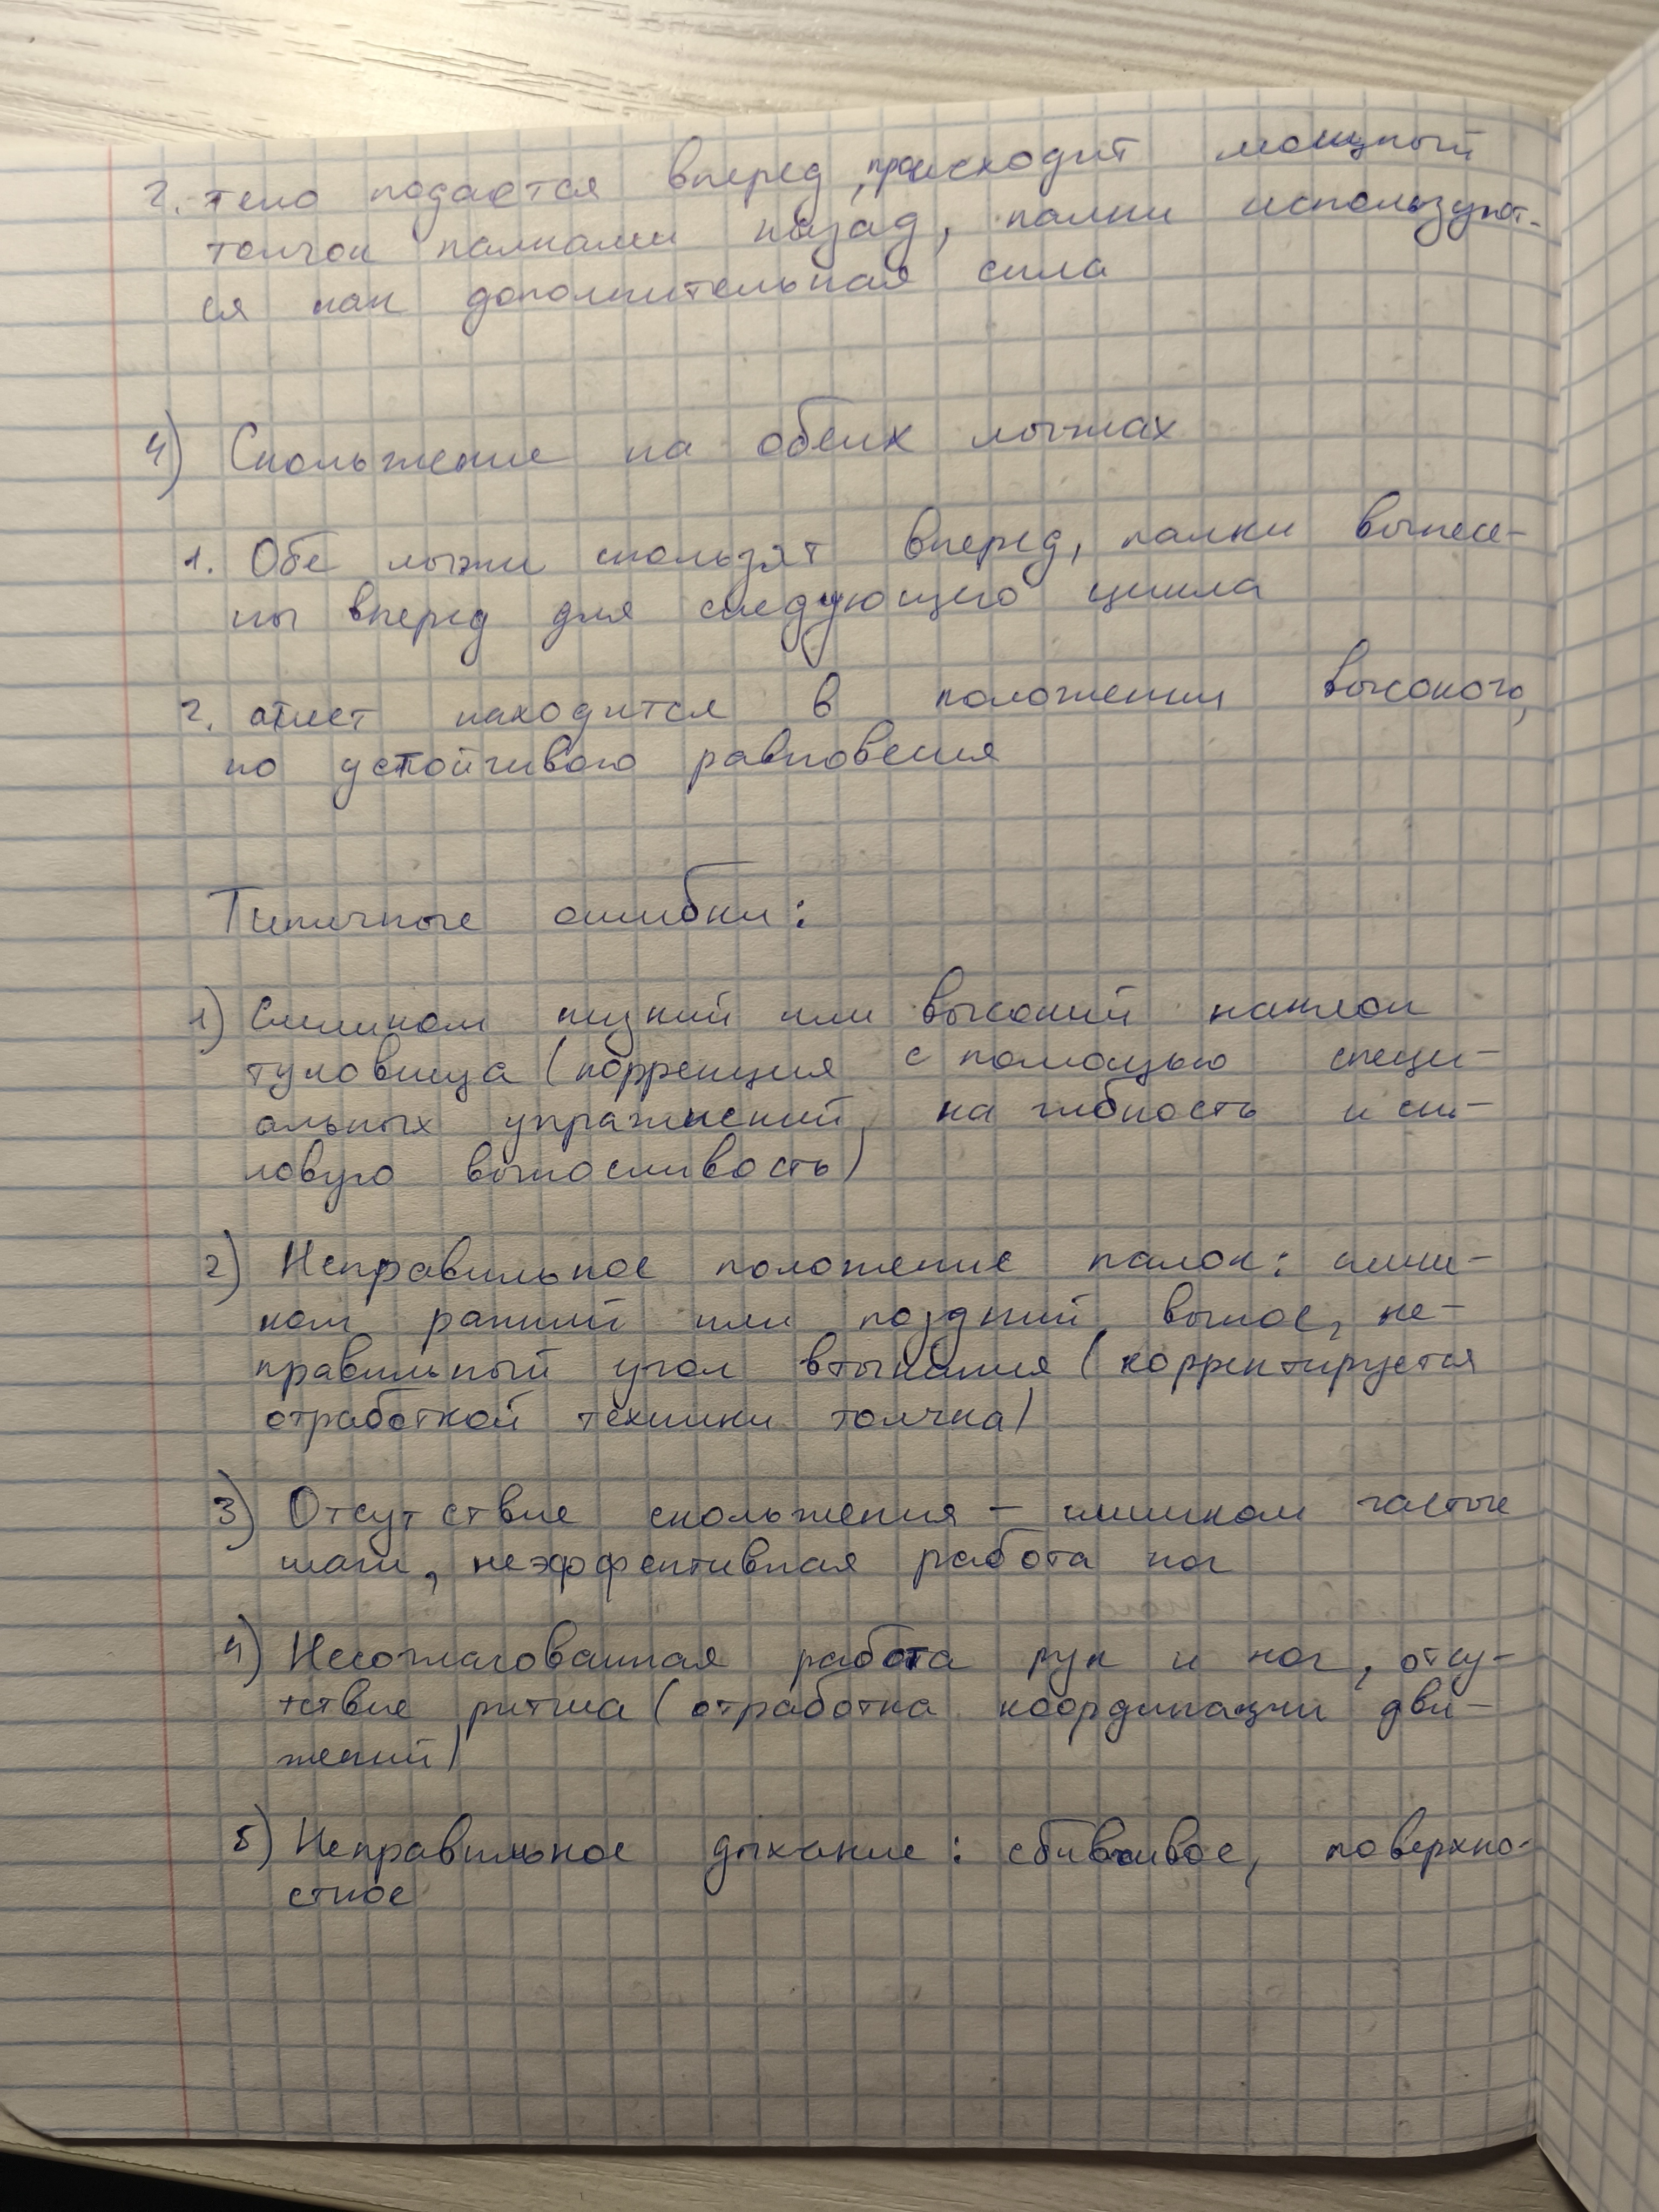 2. тело подается вперед, происходит мощный
толчок палками назад, палки используют-
ся как дополнительная сила
4) Скольжение на обеих лыжах
1. Обе лыжи скользят вперед, палки вынесе-
ны вперед для следующего цикла
2. атлет находится в положении высокого,
но устойчивого равновесия
Типичные ошибки:
1) Слишком низкий или высокий наклон
туловища (коррекция с помощью специ-
альных упражнений, на гибкость и си-
ловую выносливость)
2) Неправильное положение палок: слиш-
ком ранний или поздний вынос, не-
правильный угол втыкания (корректируется
отработкой техники толчка)
3) Отсутствие скольжения - слишком частые
шаги, неэффективная работа ног
4) Несогласованная работа рук и ног, отсу-
тствие ритма (отработка координации дви-
жений)
5) Неправильное дыхание: сбивчивое, поверхно-
стное